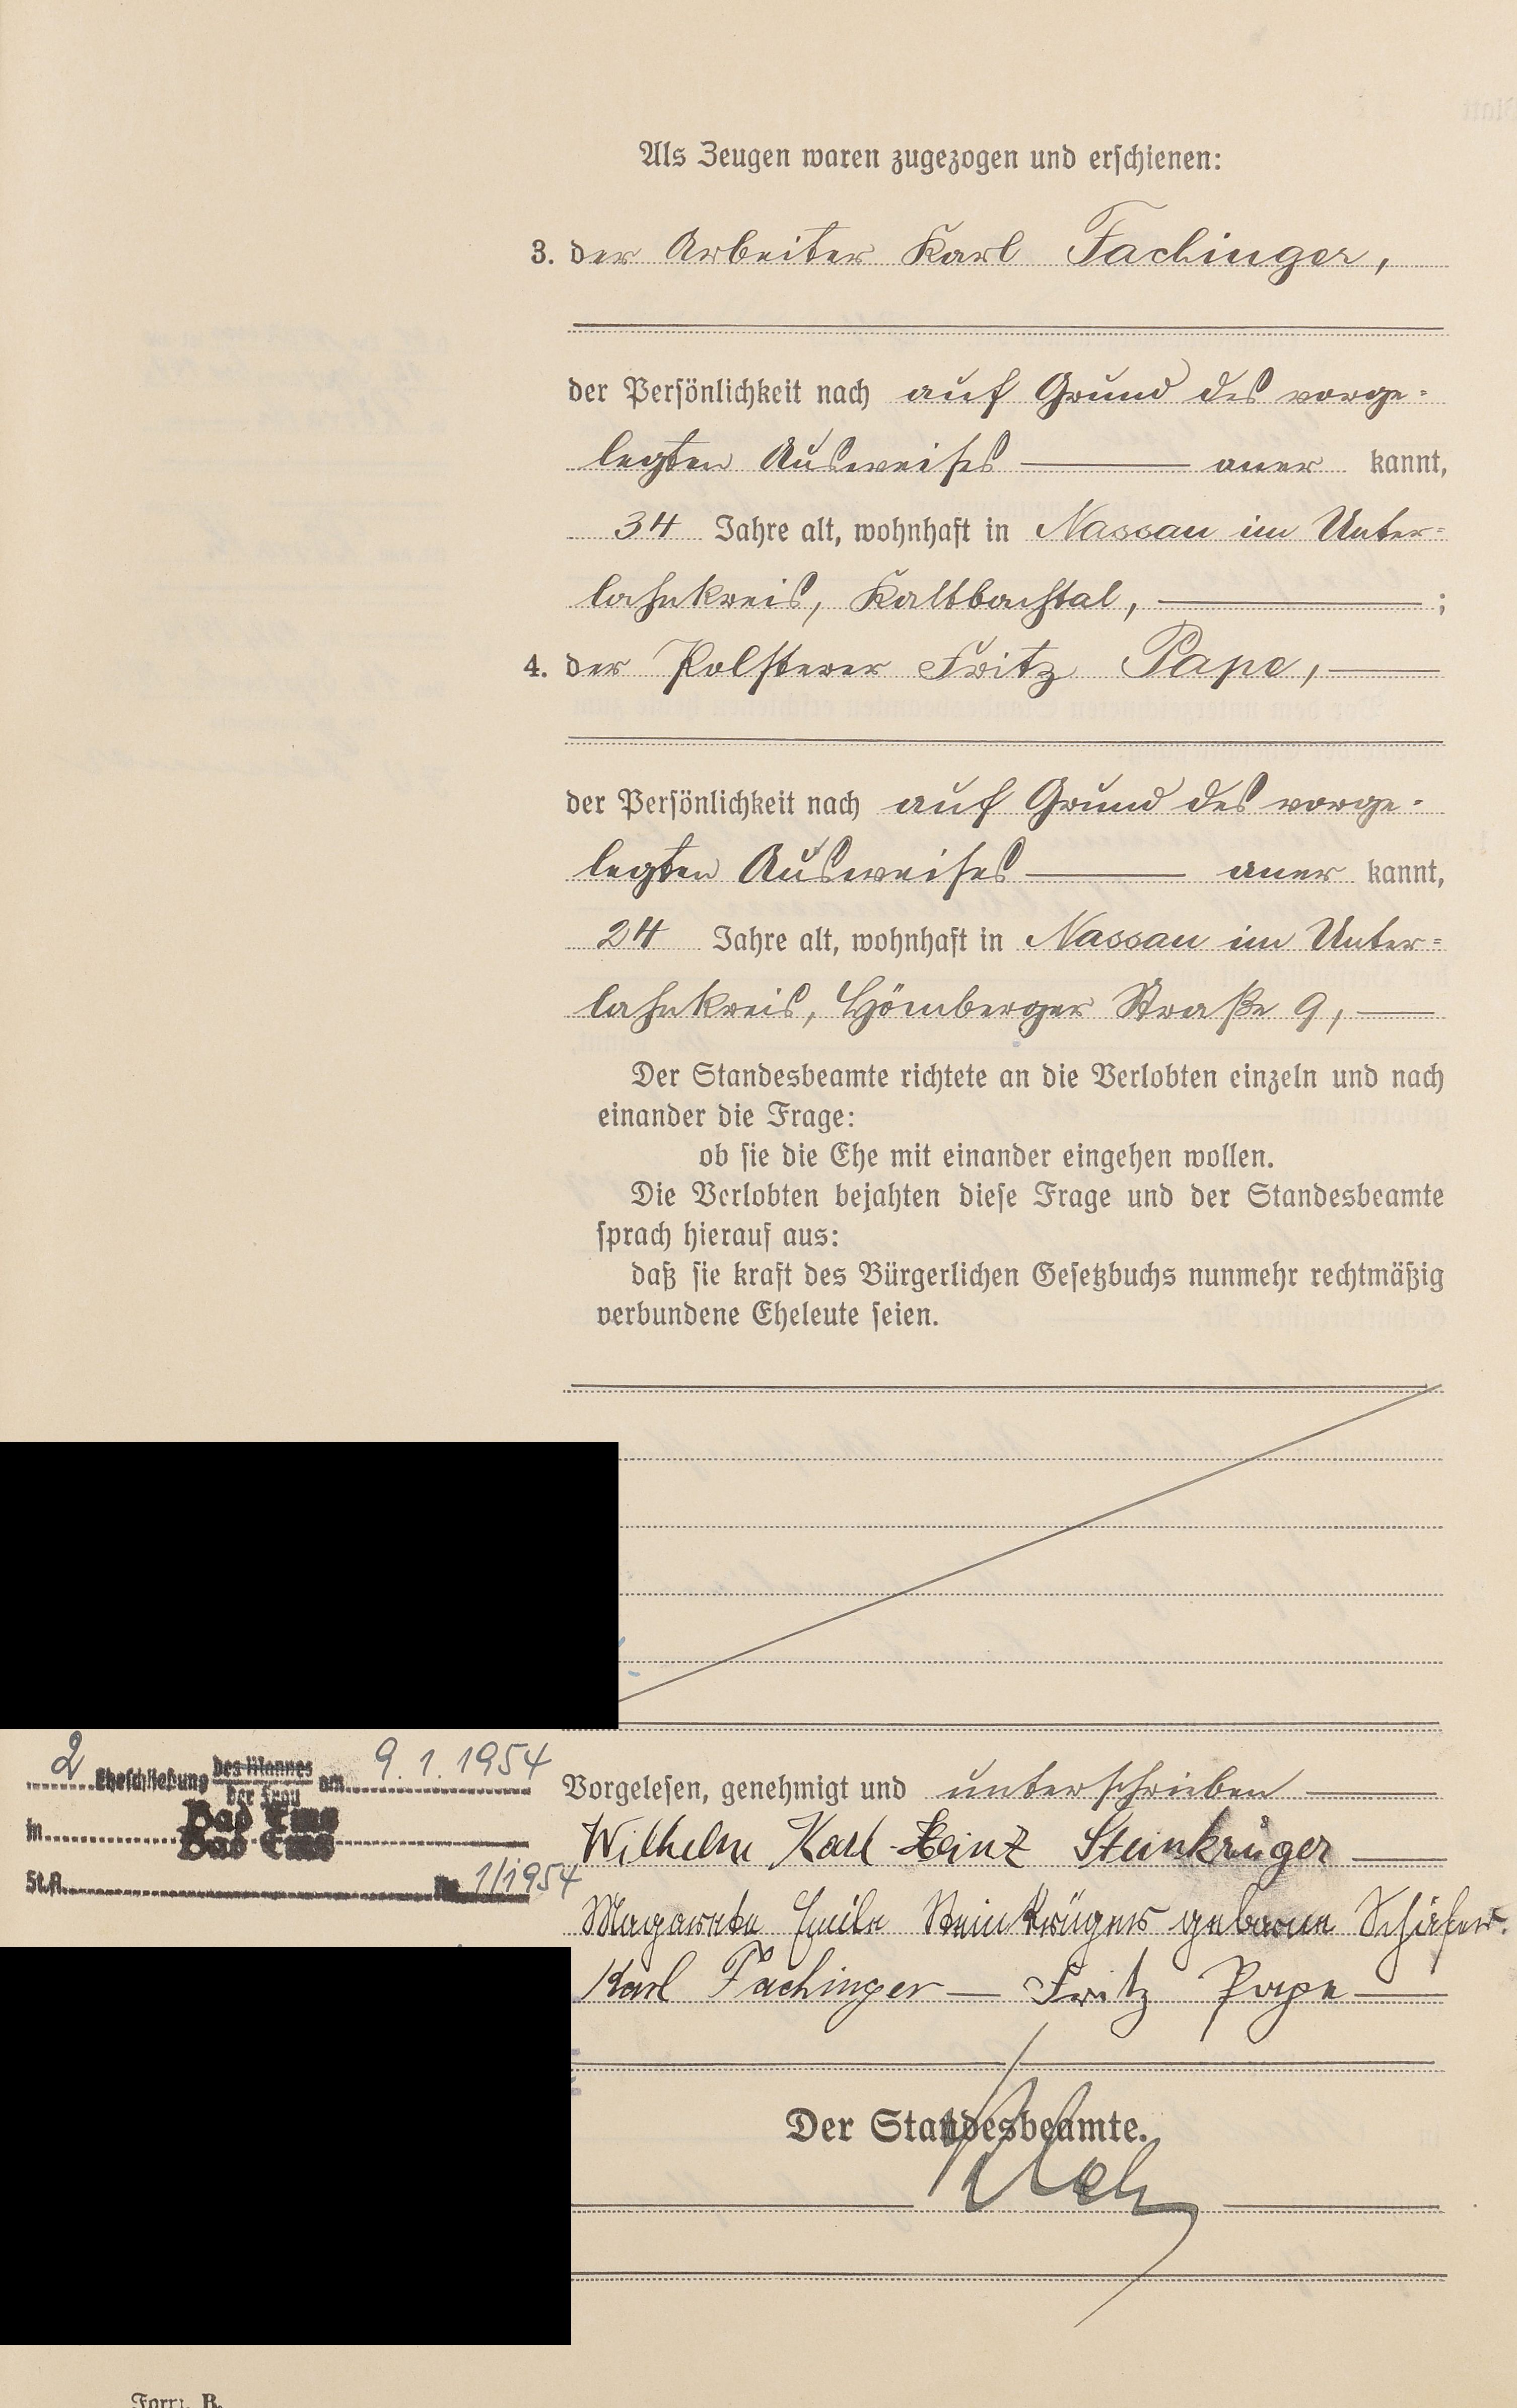 Als Zeugen waren zugezogen und erschienen:
3. der Arbeiter Karl Fachinger,
der Persönlichkeit nach auf Grund des vorge-
legten Ausweises aner kannt,
34 Jahre alt, wohnhaft in Nassau im Unter-
lahnkreis, Kaltbachtal, ;
4. der Polsterer Fritz Pape,
der Persönlichkeit nach auf Grund des vorge-
legten Ausweises aner kannt,
24 Jahre alt, wohnhaft in Nassau im Unter-
lahnkreis, Hömberger Straße 9,
Der Standesbeamte richtete an die Verlobten einzeln und nach
einander die Frage:
ob sie die Ehe mit einander eingehen wollen.
Die Verlobten bejahten diese Frage und der Standesbeamte
sprach hierauf aus:
daß sie kraft des Bürgerlichen Gesetzbuchs nunmehr rechtmäßig
verbundene Eheleute seien.
2 Eheschließung des Mannes am 9.1.1954
der Frau
in Bad Ems
Bad Ems
St.A. Nr. 1/1954
Vorgelesen, genehmigt und unterschrieben
Wilhelm Karl-Heinz Steinkrüger
Magarete Emile Steinkrüger geborne Schäfer.
Karl Fachinger Fritz Pape
Der Standesbeamte.
Form. B.